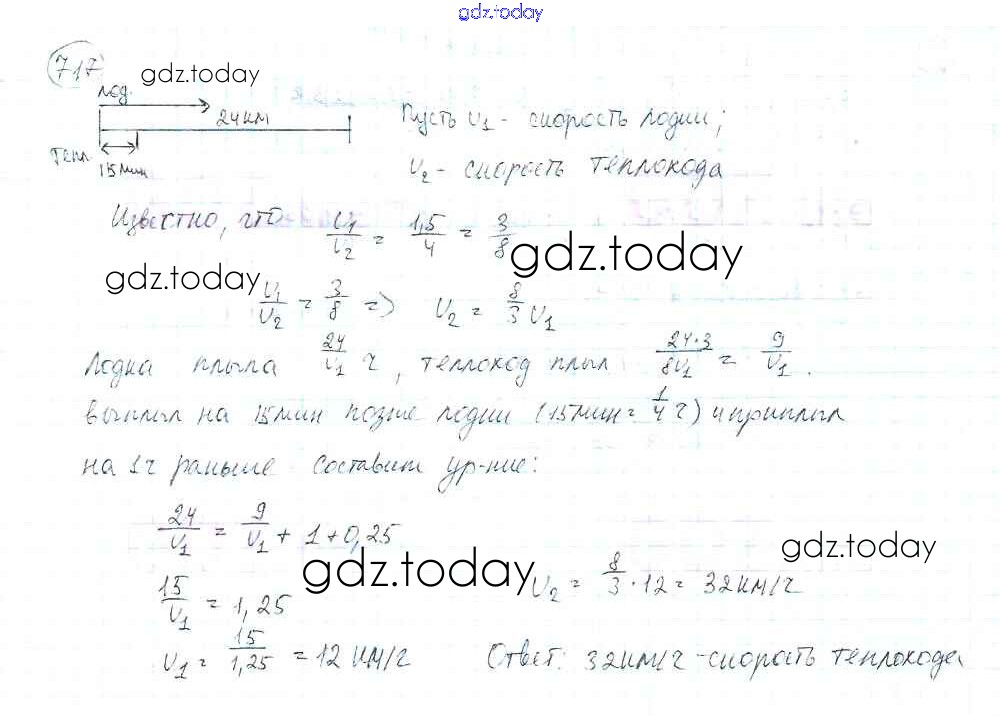 gdz.today
717
gdz.today
лод.
24 км
Тепл
15 мин
Пусть v₁ - скорость лодки;
v₂ - скорость теплохода
Известно, что v₁/v₂ = 1,5/4 = 3/8
gdz.today
gdz.today
v₁/v₂ = 3/8 => v₂ = 8/3 v₁
Лодка плыла 24/v₁ ч, теплоход плыл 24·3/8v₁ = 9/v₁.
выплыл на 15 мин позже лодки (15 мин = 1/4 ч) и приплыл
на 1 ч раньше составим ур-ние:
24/v₁ = 9/v₁ + 1 + 0,25
gdz.today
gdz.today
15/v₁ = 1,25
v₂ = 8/3 · 12 = 32 км/ч
v₁ = 15/1,25 = 12 км/ч
Ответ: 32 км/ч - скорость теплохода